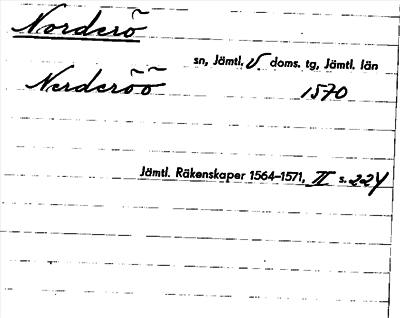 Norderö
sn, Jämtl. V doms. tg, Jämtl. län
Norderöö 1570
Jämtl. Räkenskaper 1564–1571, II s. 224